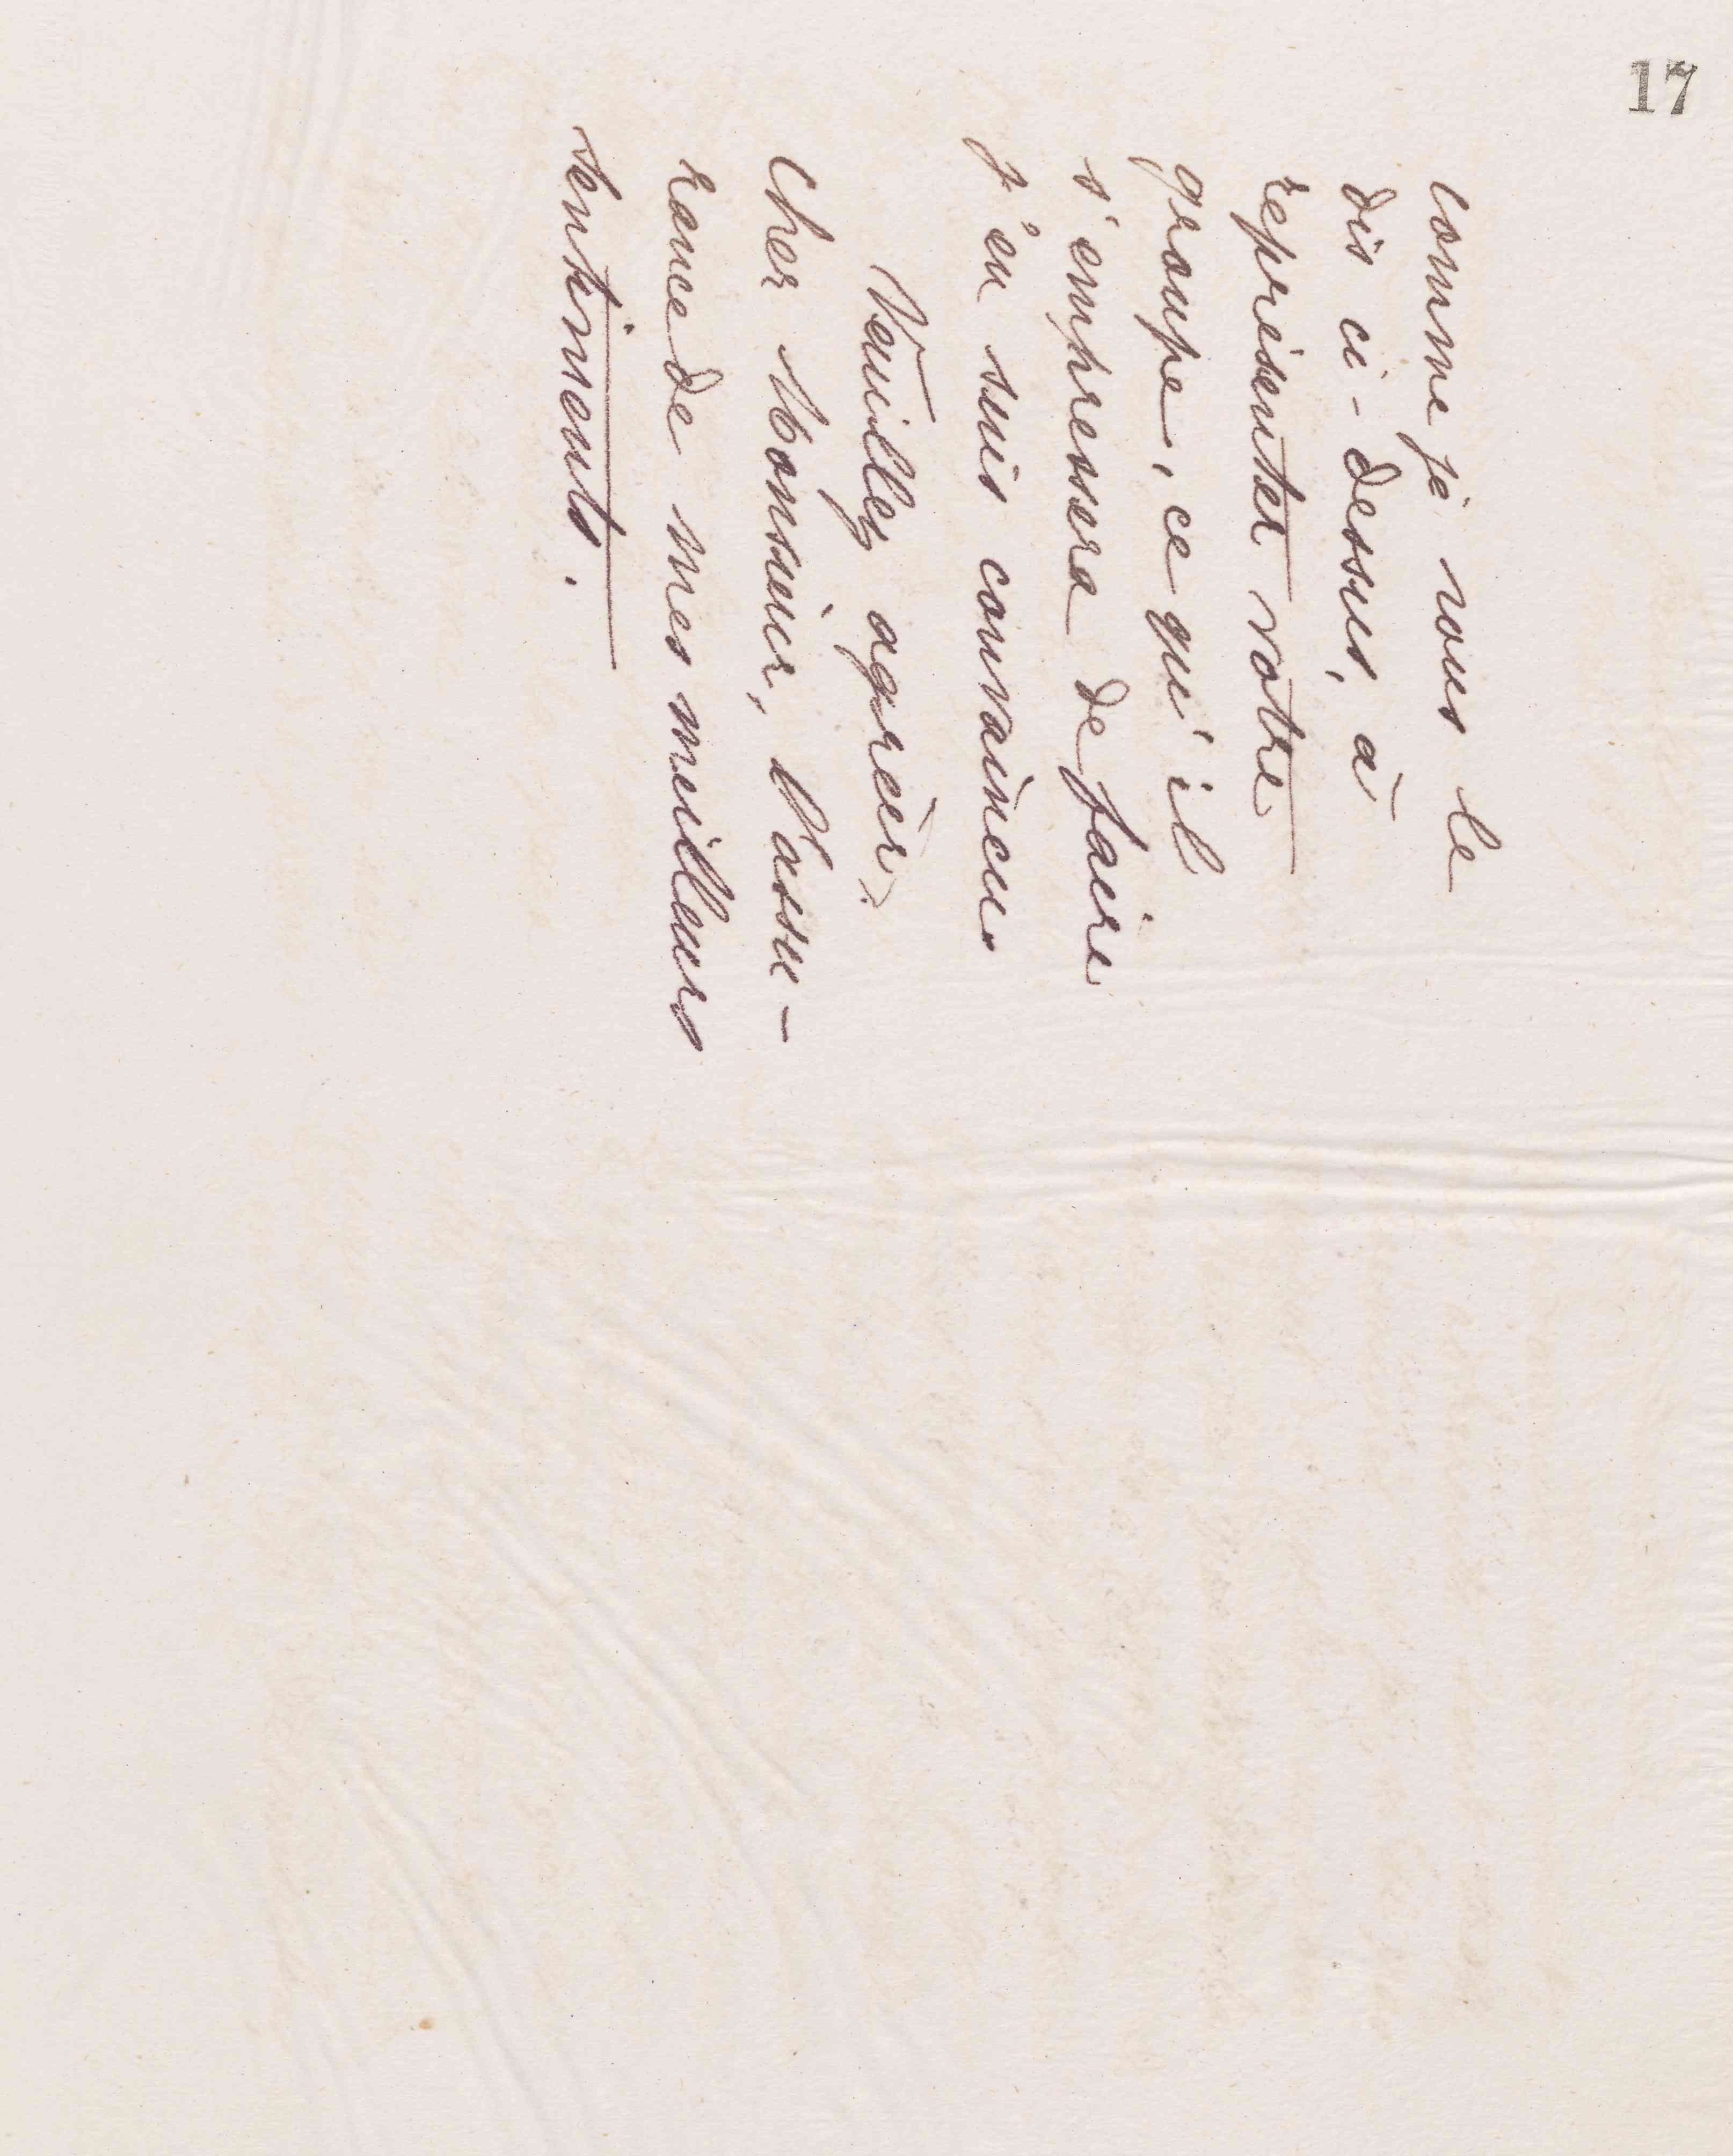 17
comme je vous le
dis ci-dessus, à
représenter votre
groupe, ce qu'il
s'empressera de faire
j'en suis convaincu.
Veuillez agréer,
Cher Monsieur, l'assu-
rance de mes meilleurs
sentiments.